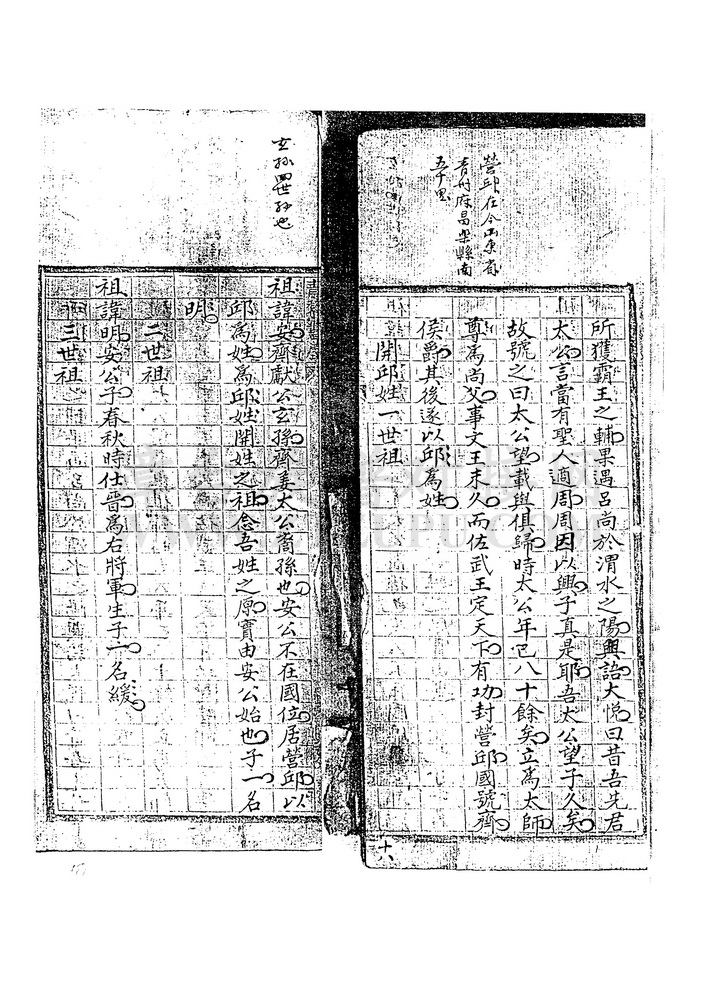 營邱在今山東省
青州府昌樂縣南
五十里
所獲霸王之輔果遇呂尚於渭水之陽與語大悅曰昔吾先君
太公言當有聖人適周周因以興子真是耶吾太公望子久矣
故號之曰太公望載與俱歸時太公年已八十餘矣立為太師
尊為尚父事文王未久而佐武王定天下有功封營邱國號齊
侯爵其後遂以邱為姓
開邱姓一世祖
十八
玄孫四世孫也
祖諱安齊獻公玄孫齊姜太公裔孫也安公不在國位居營邱以
邱為姓為邱姓開姓之祖念吾姓之原實由安公始也子一名
明
二世祖
祖諱明安公子春秋時仕晉為右將軍生子一名緩
三世祖